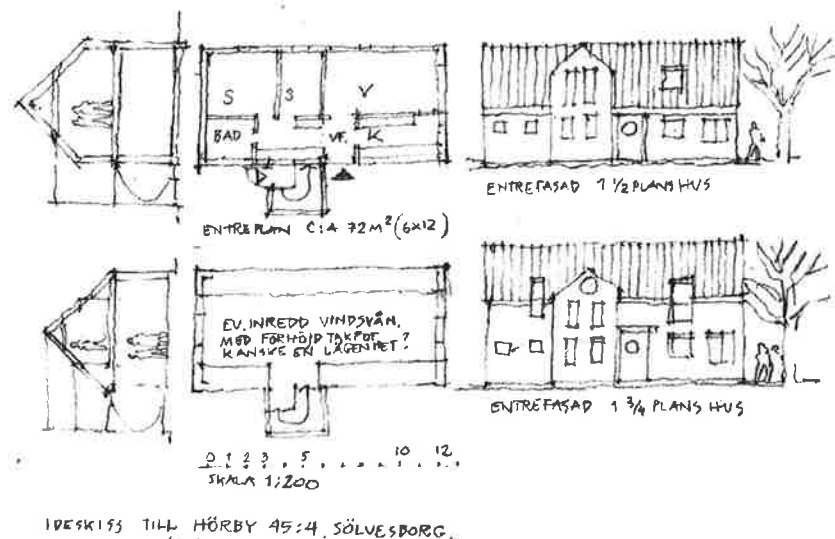 S
S
V
BAD
VF.
K
ENTREPLAN C:A 72M² (6x12)
ENTREFASAD 1 1/2 PLANS HUS
EV. INREDD VINDSVÅN,
MED FÖRHÖJD TAKFOT.
KANSKE EN LÄGENHET?
ENTREFASAD 1 3/4 PLANS HUS
0 1 2 3 5 10 12
SKALA 1:200
IDESKISS TILL HÖRBY 45:4, SÖLVESBORG.